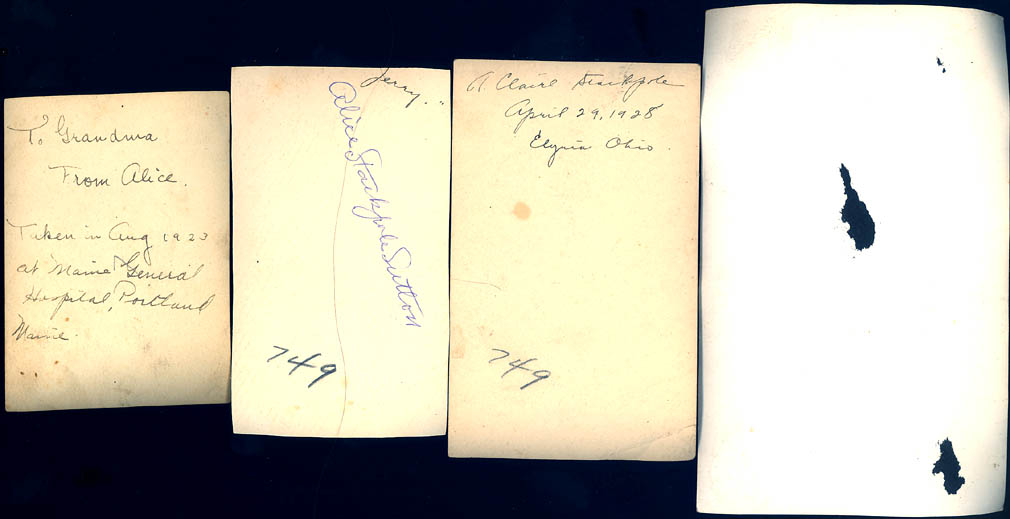 To Grandma
From Alice.
Taken in Aug 1923
at Maine General
Hospital, Portland
Maine.
Jerry.
Alice Stackpole Sutton
749
A. Claire Stackpole
April 29, 1928
Elyria Ohio.
749